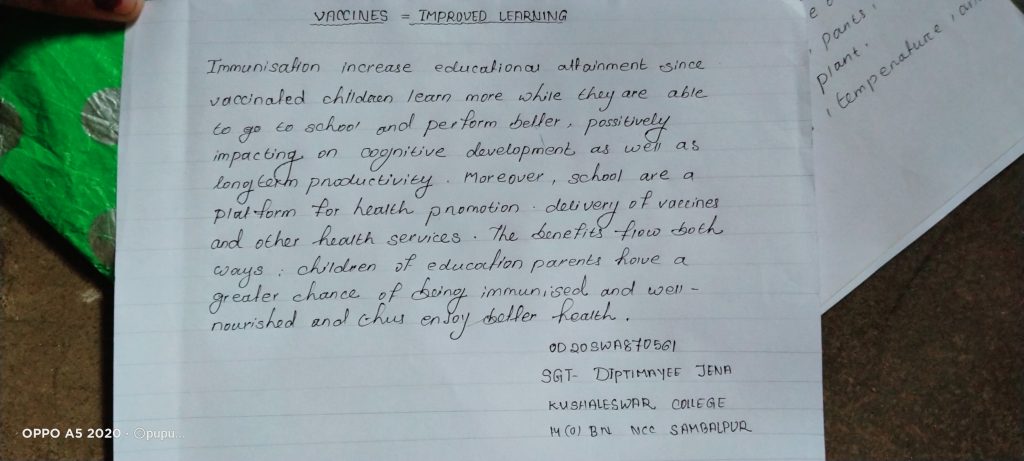 VACCINES = IMPROVED LEARNING
Immunisation increase educational attainment since
vaccinated children learn more while they are able
to go to school and perform better, possitively
impacting on cognitive development as well as
long term productivity. Moreover, school are a
plat form for health promotion. delivery of vaccines
and other health services. The benefits flow both
ways: children of education parents have a
greater chance of being immunised and well-
nourished and thus enjoy better health.
OD20SWA870561
SGT- DIPTIMAYEE JENA
KUSHALESWAR COLLEGE
14 (O) BN NCC SAMBALPUR
pants,
plant.
, temperature,
OPPO A5 2020 · ©pupu...